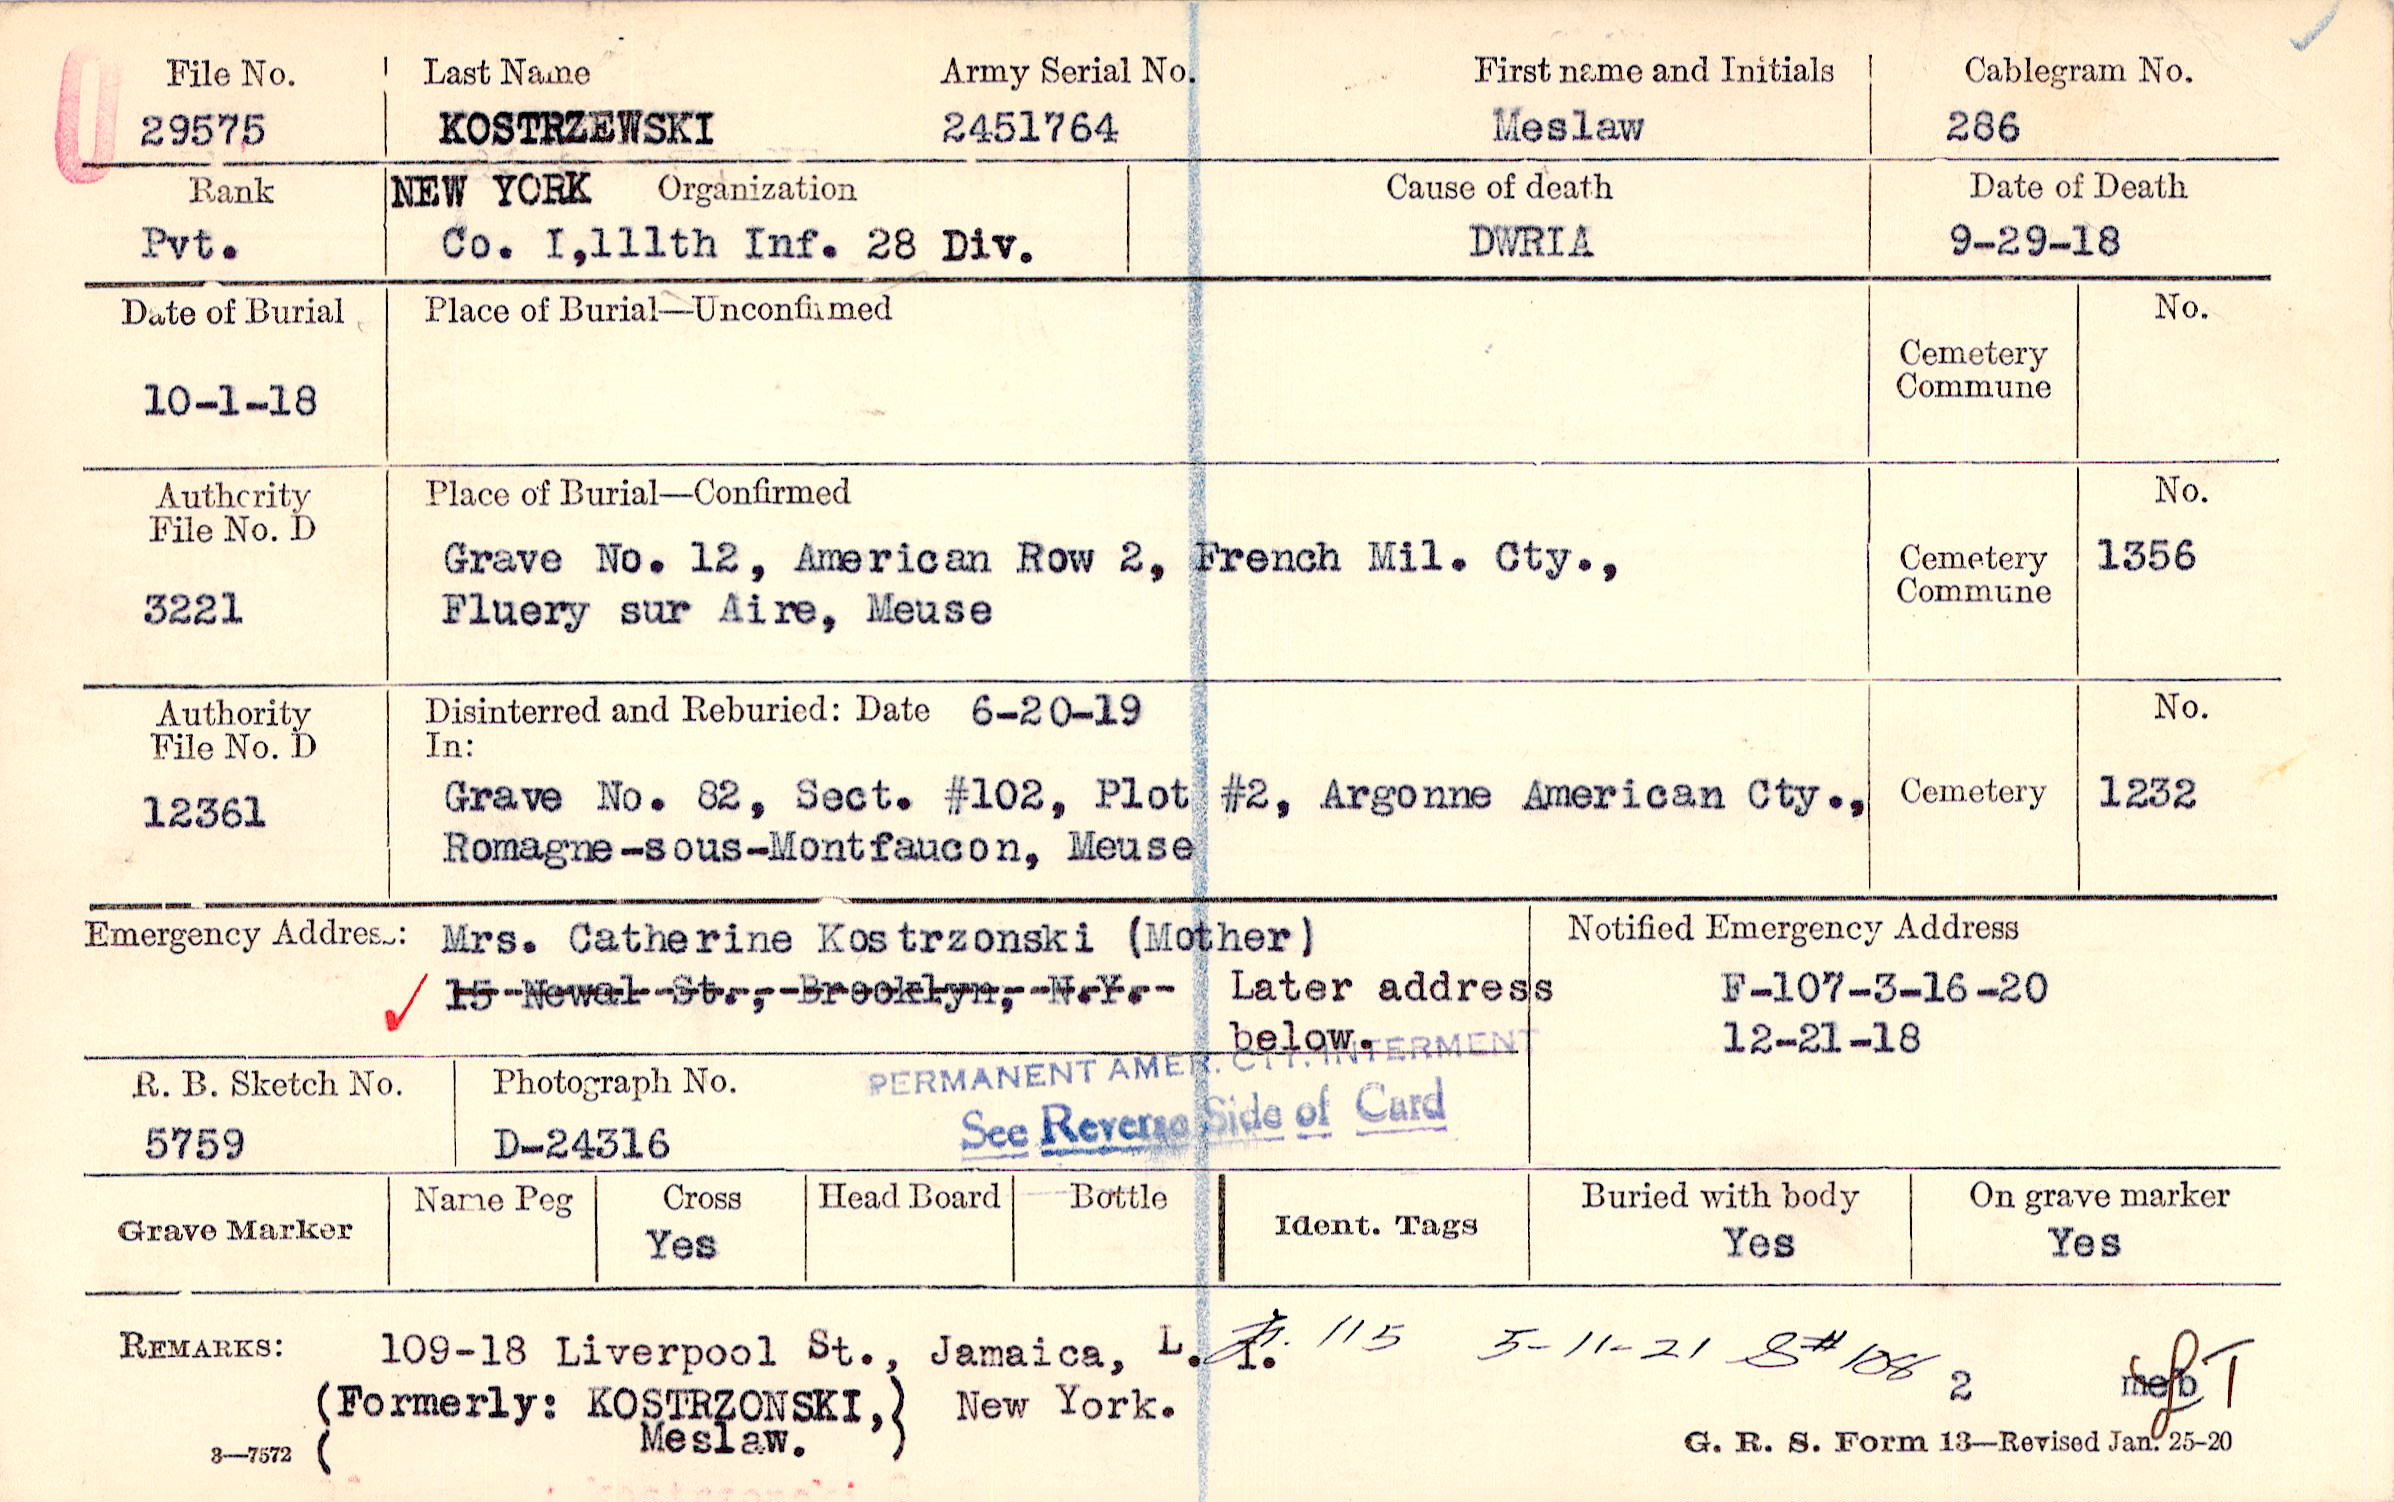 File No. Last Name Army Serial No. First name and Initials Cablegram No.
29575 KOSTRZEWSKI 2451764 Meslaw 286
Rank NEW YORK Organization Cause of death Date of Death
Pvt. Co. I,111th Inf. 28 Div. DWRIA 9-29-18
Date of Burial Place of Burial—Unconfirmed No.
Cemetery
Commune
10-1-18
Authority Place of Burial—Confirmed No.
File No. D
Grave No. 12, American Row 2, French Mil. Cty., Cemetery 1356
Commune
3221 Fluery sur Aire, Meuse
Authority Disinterred and Reburied: Date 6-20-19 No.
File No. D In:
12361 Grave No. 82, Sect. #102, Plot #2, Argonne American Cty., Cemetery 1232
Romagne-sous-Montfaucon, Meuse
Emergency Address: Mrs. Catherine Kostrzonski (Mother) Notified Emergency Address
15 Nowal St., Brooklyn, N.Y. Later address F-107-3-16-20
below. 12-21-18
PERMANENT AMER. CTY. INTERMENT
R. B. Sketch No. Photograph No.
See Reverse Side of Card
5759 D-24316
Grave Marker Name Peg Cross Head Board Bottle Ident. Tags Buried with body On grave marker
Yes Yes Yes
REMARKS: 109-18 Liverpool St., Jamaica, L. I. 115 5-11-21 S# 108
(Formerly: KOSTRZONSKI,) New York. 2
( Meslaw. )
3—7572 G. R. S. Form 13—Revised Jan. 25-20